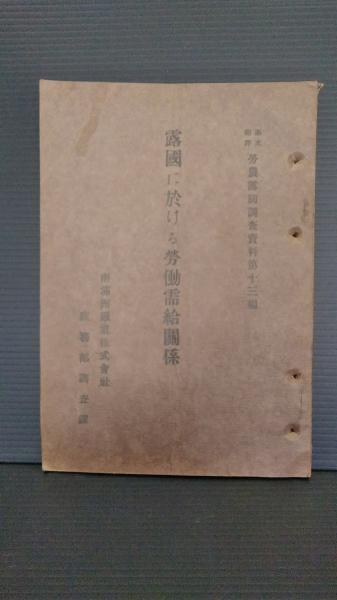 露文
翻譯
勞農露國調査資料第十三編
露國に於ける勞働需給關係
南滿洲鐵道株式會社
庶務部調査課